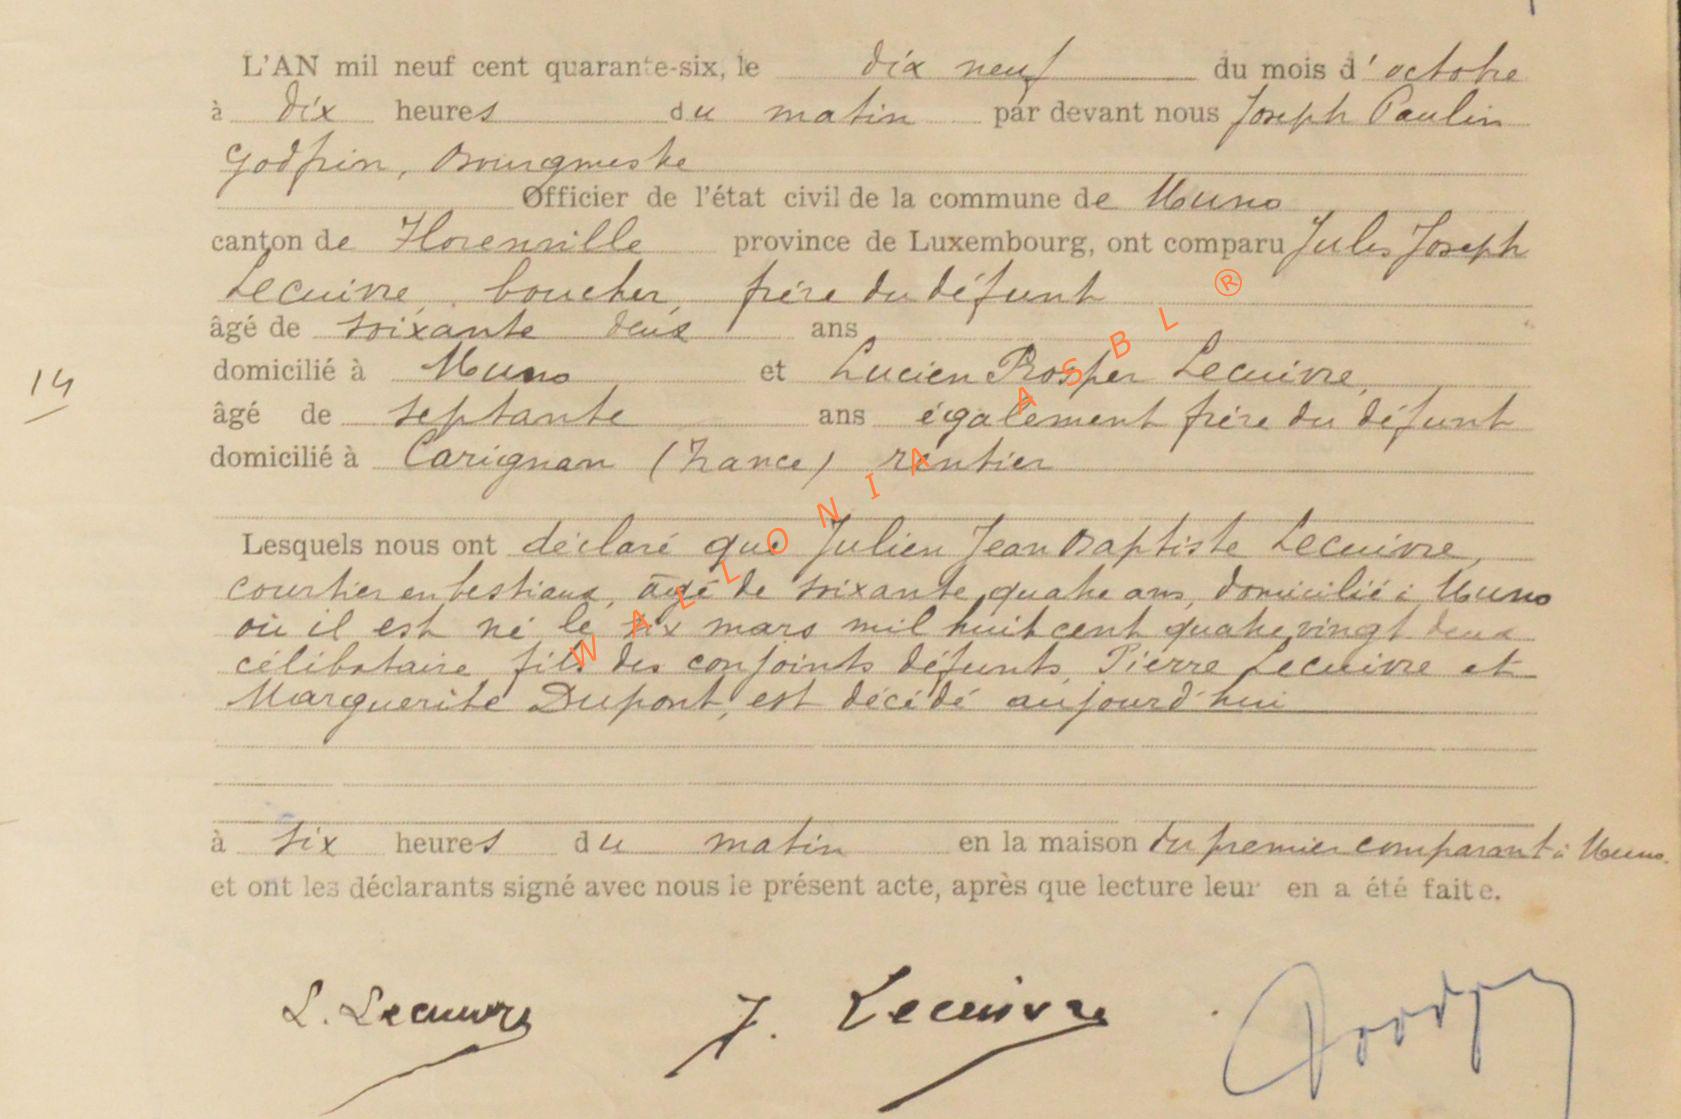 L'AN mil neuf cent quarante-six, le dix neuf du mois d'octobre
à dix heures du matin par devant nous Joseph Paulin
Godfrin, Bourgmestre
Officier de l'état civil de la commune de Muno
canton de Florenville province de Luxembourg, ont comparu Jules Joseph
Lecuivre, boucher, frère du défunt
âgé de soixante deux ans
domicilié à Muno et Lucien Prosper Lecuivre,
14
âgé de septante ans également frère du défunt
domicilié à Carignan (France) rentier
Lesquels nous ont déclaré que Julien Jean Baptiste Lecuivre,
courtier en bestiaux, âgé de soixante quatre ans, domicilié à Muno
où il est né le six mars mil huit cent quatre vingt deux
célibataire fils des conjoints défunts Pierre Lecuivre et
Marguerite Dupont, est décédé aujourd'hui
à six heures du matin en la maison du premier comparant à Muno.
et ont les déclarants signé avec nous le présent acte, après que lecture leur en a été faite.
L. Lecuivre J. Lecuivre
WALLONIA ASBL ®